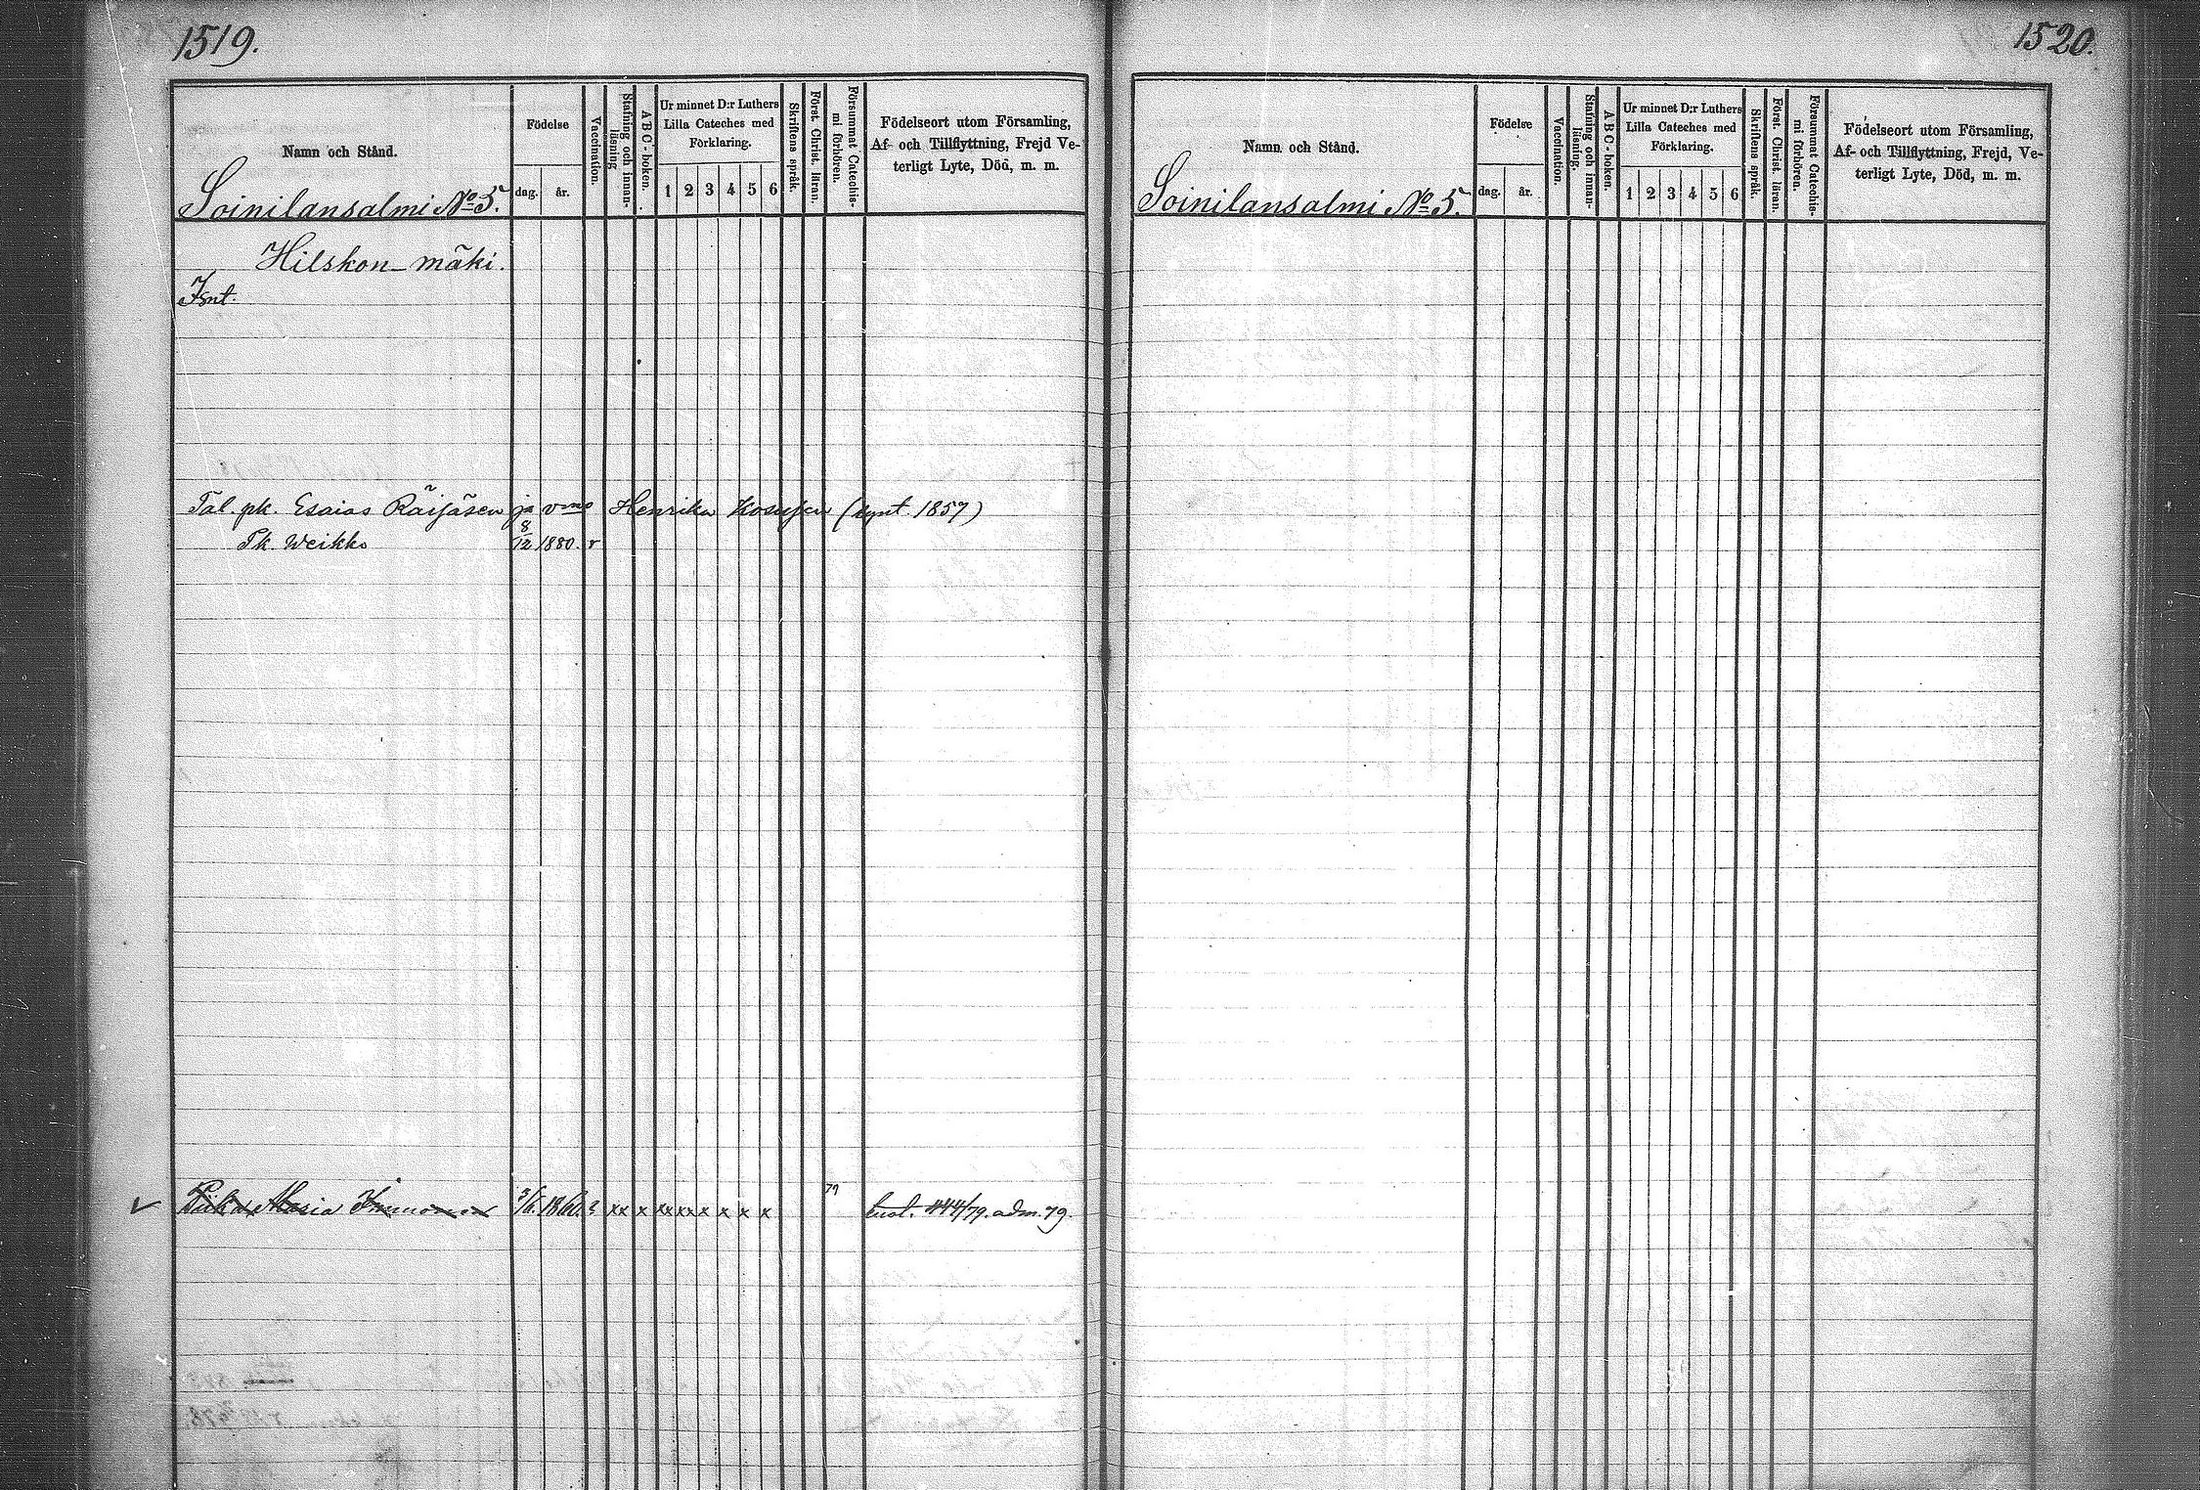 1519.
Namn och Stånd.
Födelse
dag.
år.
Vaccination.
Stafning och innan-
läsning
A B C - boken.
Ur minnet D:r Luthers
Lilla Cateches med
Förklaring.
1 2 3 4 5 6
Skriftens språk.
Först. Christ. läran.
Försummat Catechis-
mi förhören.
Födelseort utom Församling,
Af- och Tillflyttning, Frejd Ve-
terligt Lyte, Död, m. m.
Soinilansalmi No 5.
Hilskon-mäki.
Tal. pk. Esaias Räisäsen ja vmo Henrika Kosusen (synt. 1857)
Pk. Weikko 8/12 1880. r
Piika Maria Immonen 3/6. 1860. xx x xx xx x x x x 79 /79. adm. 79.
1520.
Namn och Stånd.
Födelse
dag.
år.
Vaccination.
Stafning och innan-
läsning.
A B C - boken.
Ur minnet D:r Luthers
Lilla Cateches med
Förklaring.
1 2 3 4 5 6
Skriftens språk.
Först. Christ. läran.
Försummat Catechis-
mi förhören.
Födelseort utom Församling,
Af- och Tillflyttning, Frejd, Ve-
terligt Lyte, Död, m. m.
Soinilansalmi No 5.